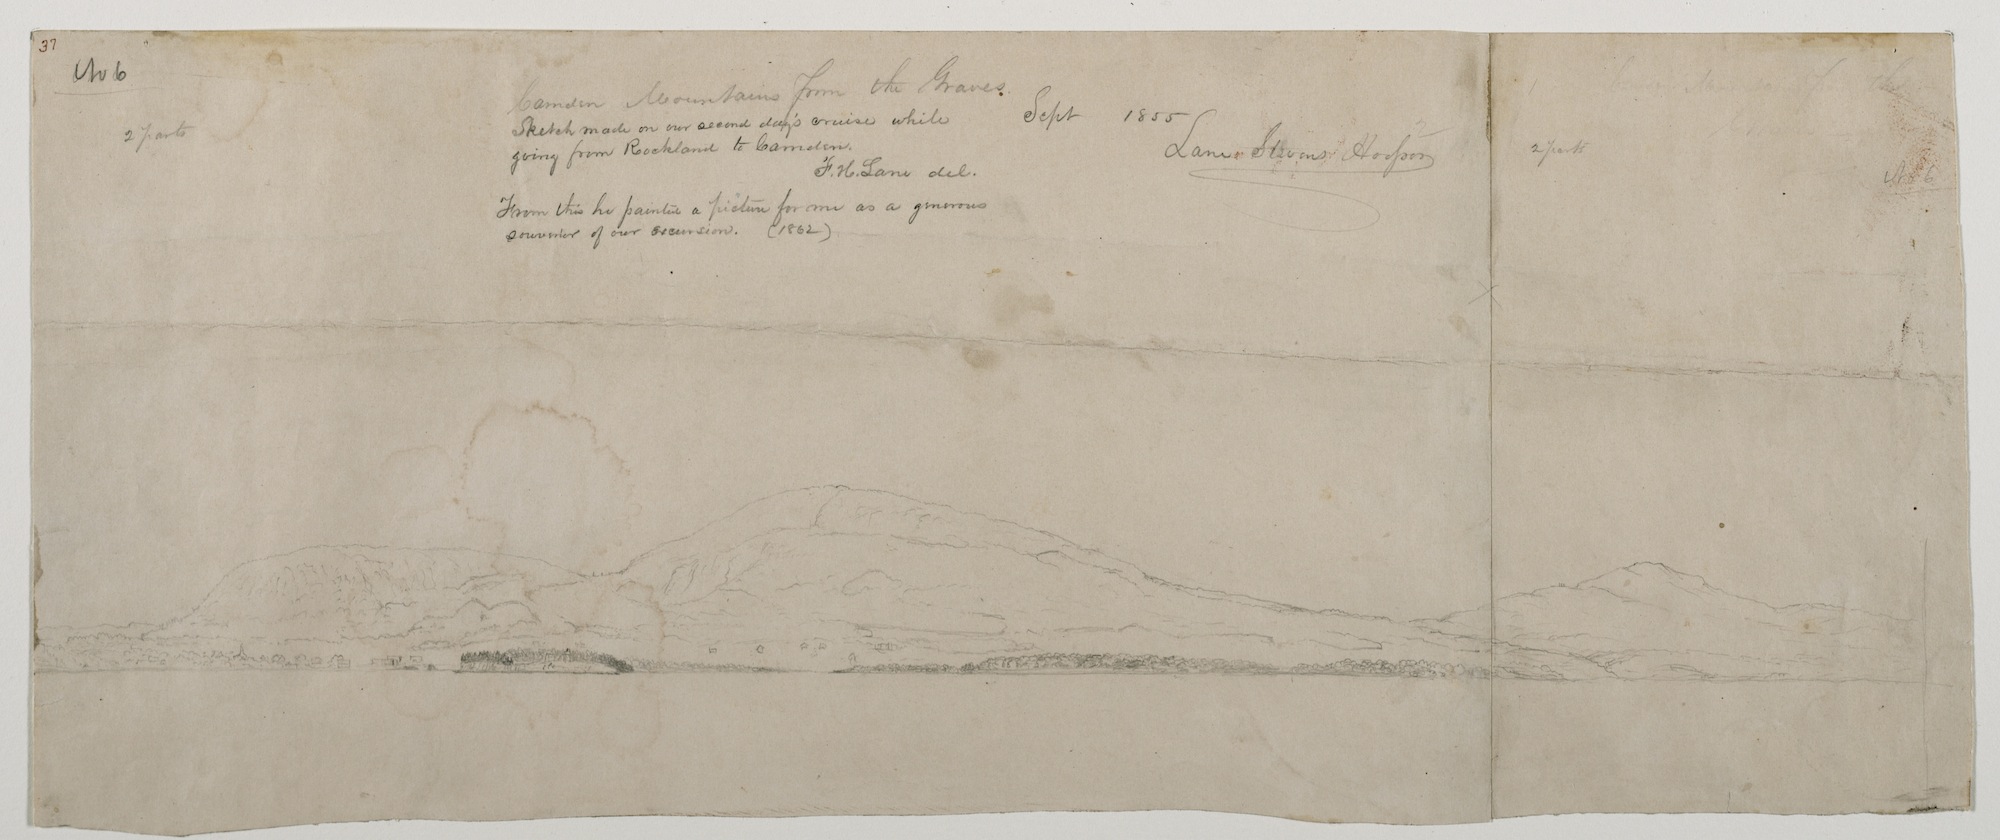 37
No 6
2 parts
Camden Mountains from the Graves.
Sept 1855
Sketch made on our second day's cruise while
going from Rockland to Camden.
F.H. Lane del.
Lane, Stevens, Hooper
From this he painted a picture for me as a generous
souvenir of our excursion. (1862)
2 parts
Camden Mountains from the
No 6